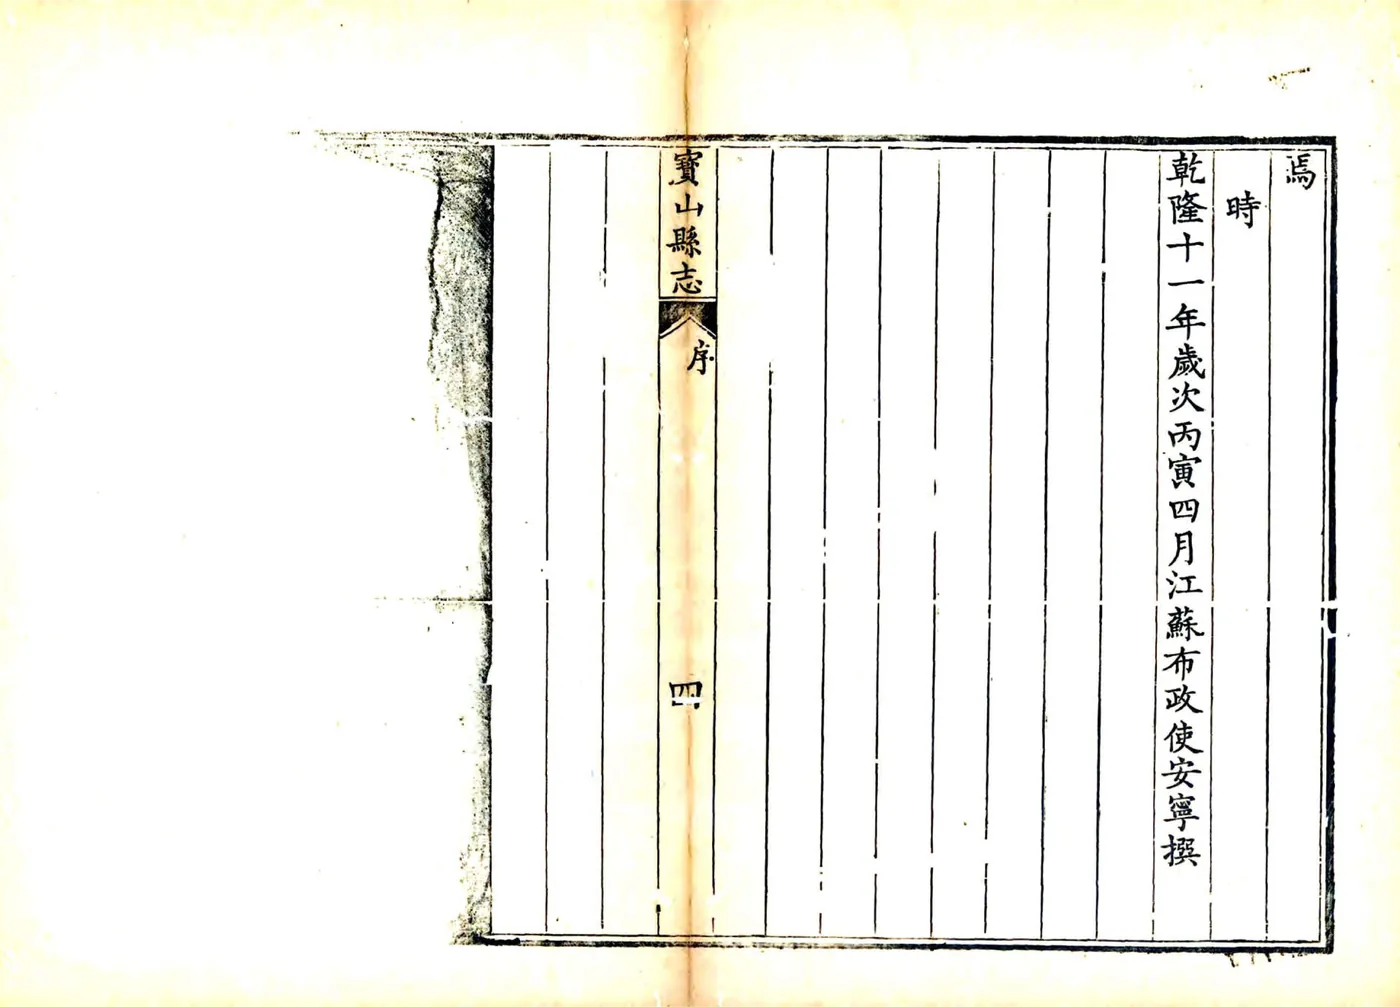 焉
時
乾隆十一年歲次丙寅四月江蘇布政使安寧撰
寶山縣志
序
四